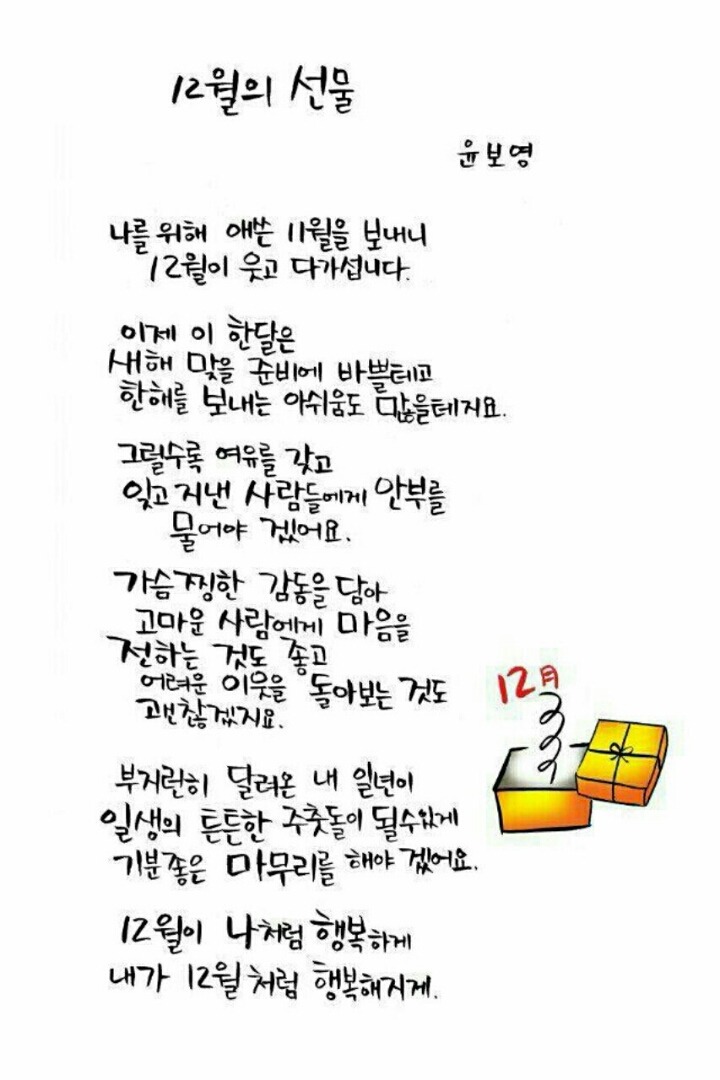 12월의 선물
윤보영
나를 위해 애쓴 11월을 보내니
12월이 웃고 다가섭니다.
이제 이 한달은
새해 맞을 준비에 바쁠테고
한해를 보내는 아쉬움도 많을테지요.
그럴수록 여유를 갖고
잊고 지낸 사람들에게 안부를
물어야 겠어요.
가슴찡한 감동을 담아
고마운 사람에게 마음을
전하는 것도 좋고
어려운 이웃을 돌아보는 것도
괜찮겠지요.
12月
부지런히 달려온 내 일년이
일생의 튼튼한 주춧돌이 될수있게
기분좋은 마무리를 해야 겠어요.
12월이 나처럼 행복하게
내가 12월처럼 행복해지게.